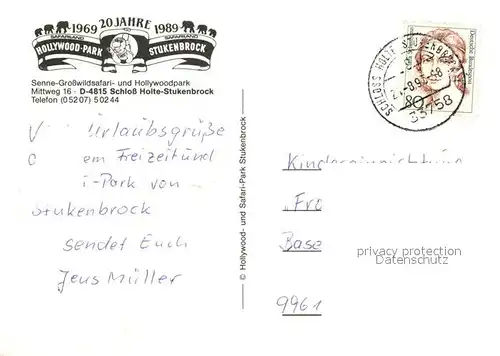 1969 20 JAHRE 1989
SAFARILAND SAFARILAND
HOLLYWOOD-PARK STUKENBROCK
Senne-Großwildsafari- und Hollywoodpark
Mittweg 16 · D-4815 Schloß Holte-Stukenbrock
Telefon (05207) 50244
V Urlaubsgrüße
em Freizeitund
i-Park von
Stukenbrock
sendet Euch
Jens Müller
© Hollywood- und Safari-Park Stukenbrock
SCHLOSS HOLTE-STUKENBROCK
33758
80
Deutsche Bundespost
Kindereinrichtung
"Fro
Base
9961
privacy protection
Datenschutz